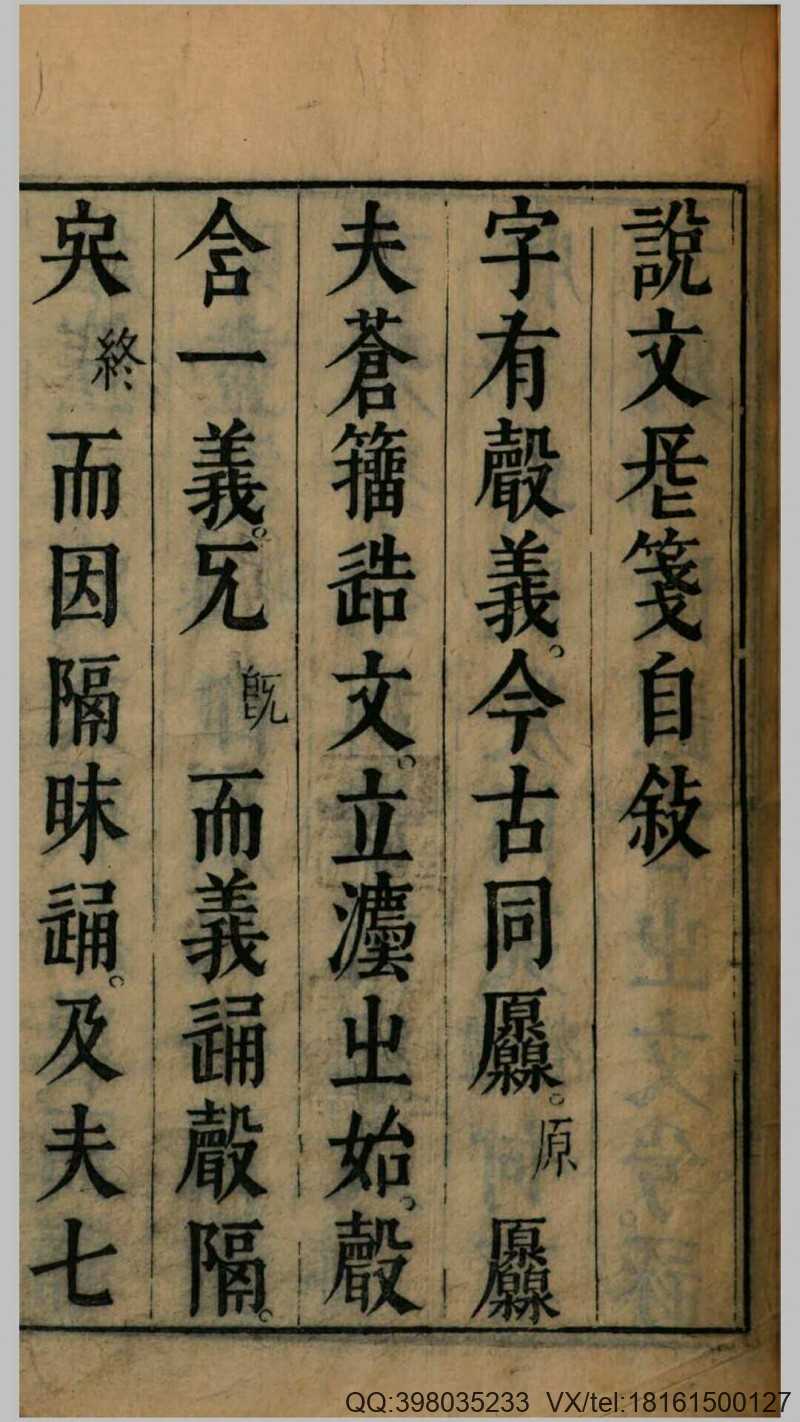 說文長箋自敘
字有聲義。今古同厵。原厵
夫蒼籒造文。立灋㞢始。聲
含一義。旡既而義通聲隔。
終而因隔昧通。及夫七
QQ:398035233 VX/tel:18161500127